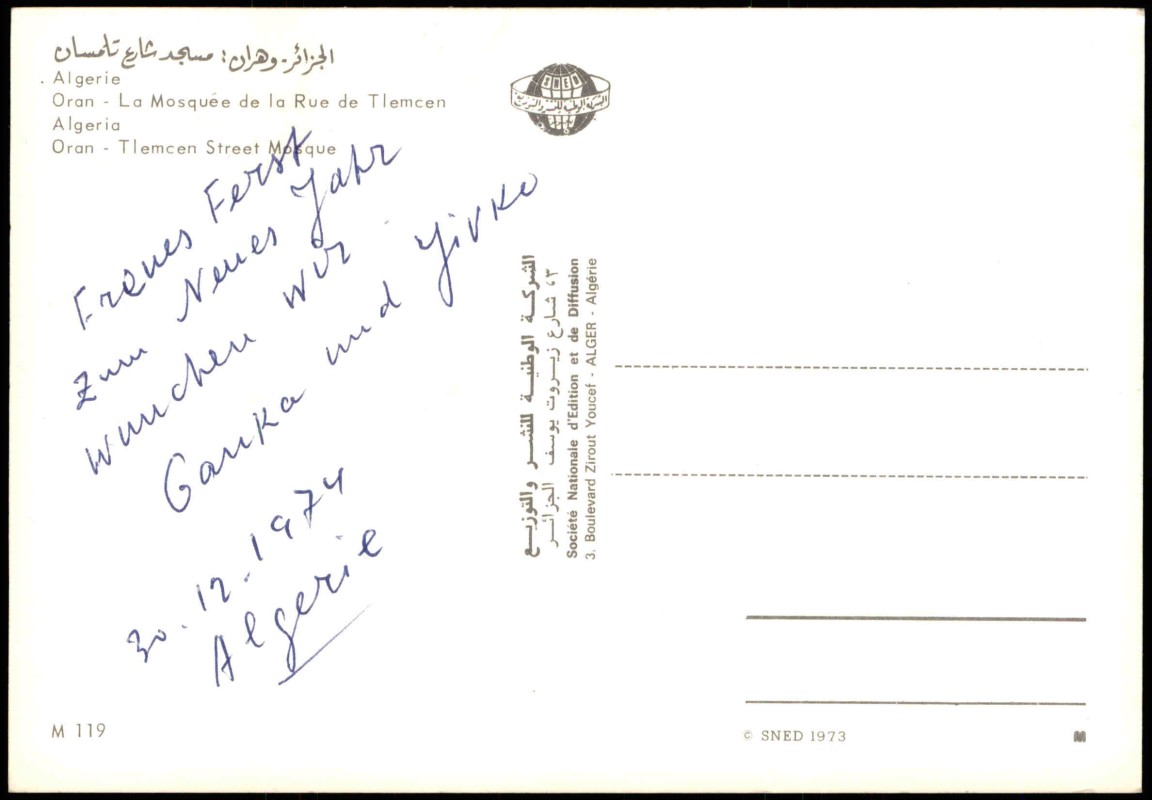 الجزائر - وهران : مسجد شارع تلمسان
Algerie
Oran - La Mosquée de la Rue de Tlemcen
Algeria
Oran - Tlemcen Street Mosque
SNED
الشركة الوطنية للنشر والتوزيع
Froues Ferst
zum Neues Jahr
wunchen wir
Ganka und Jivko
30.12.1974
Algerie
الشركة الوطنية للنشر والتوزيع
٣، شارع زيروت يوسف الجزائر
Société Nationale d'Edition et de Diffusion
3. Boulevard Zirout Youcef - ALGER - Algérie
M 119
© SNED 1973
M